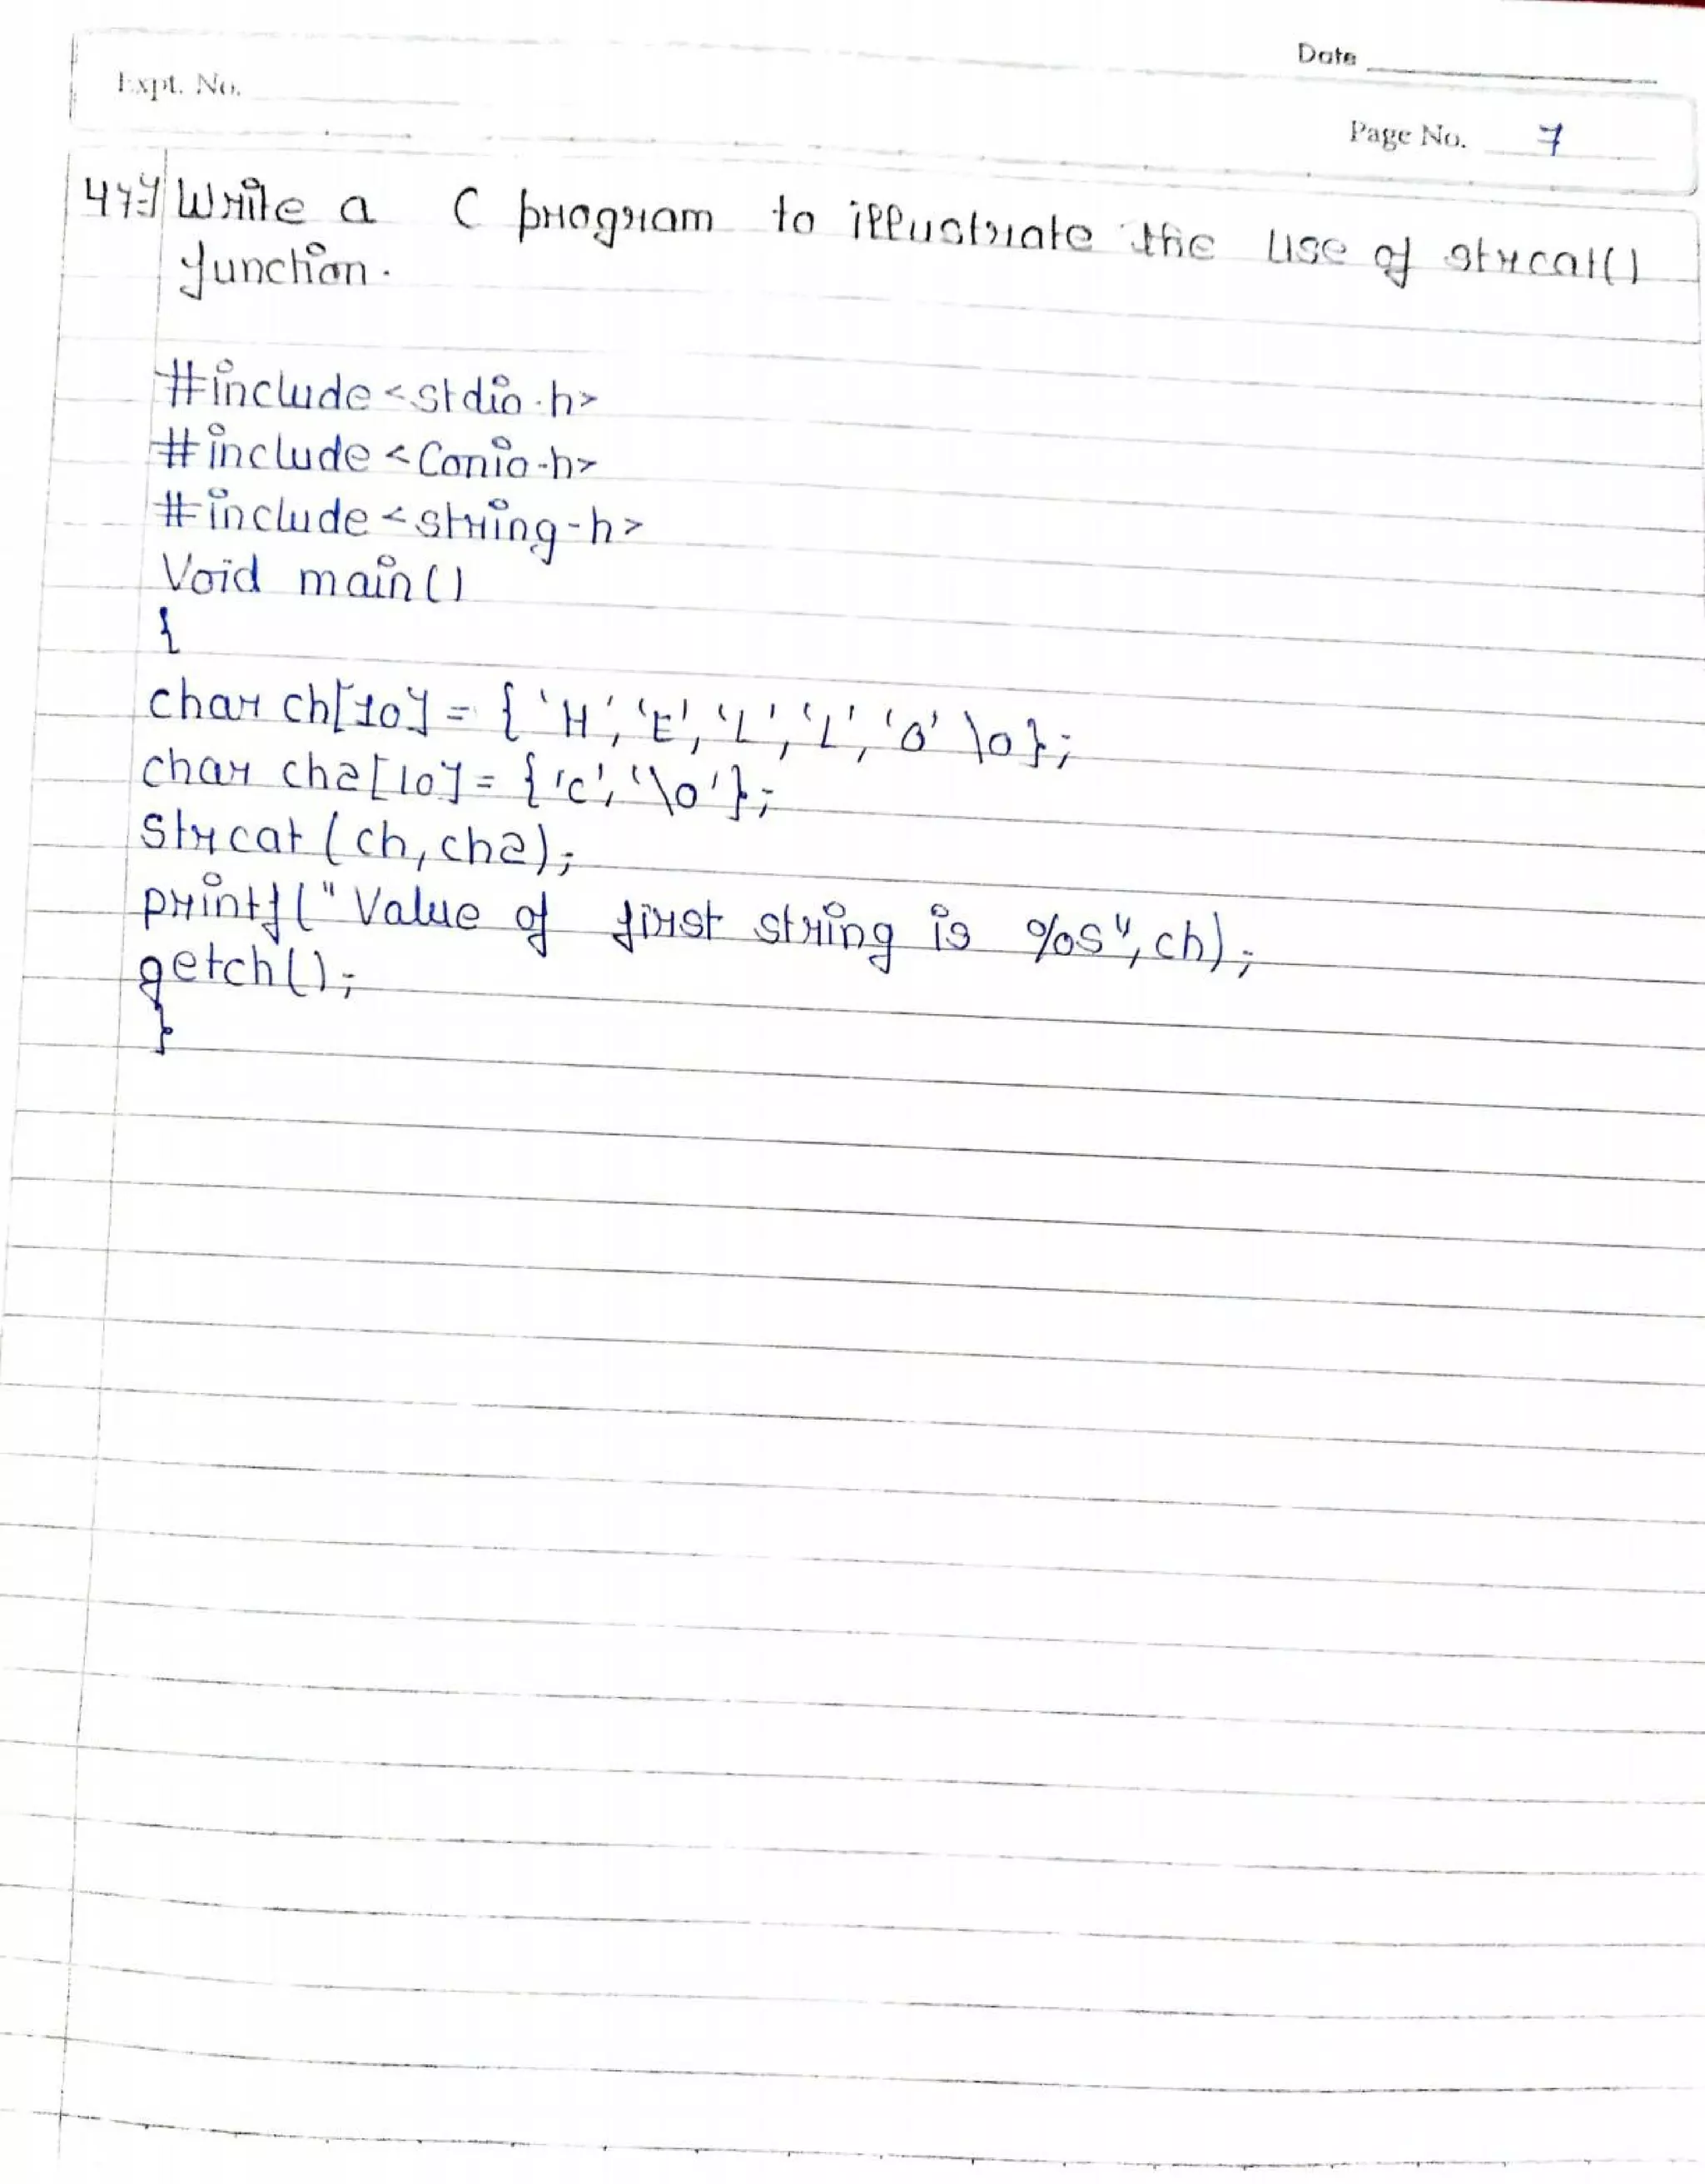 Date
Expt. No.
Page No. 7
47:] Write a C program to illustrate the use of strcat()
function.
#include<stdio.h>
#include<Conio-h>
#include<string-h>
Void main()
{
char ch[10] = {'H','E','L','L','O' \0};
char ch2[10] = {'c','\0'};
Strcat(ch,ch2);
printf("Value of first string is %s",ch);
getch();
}